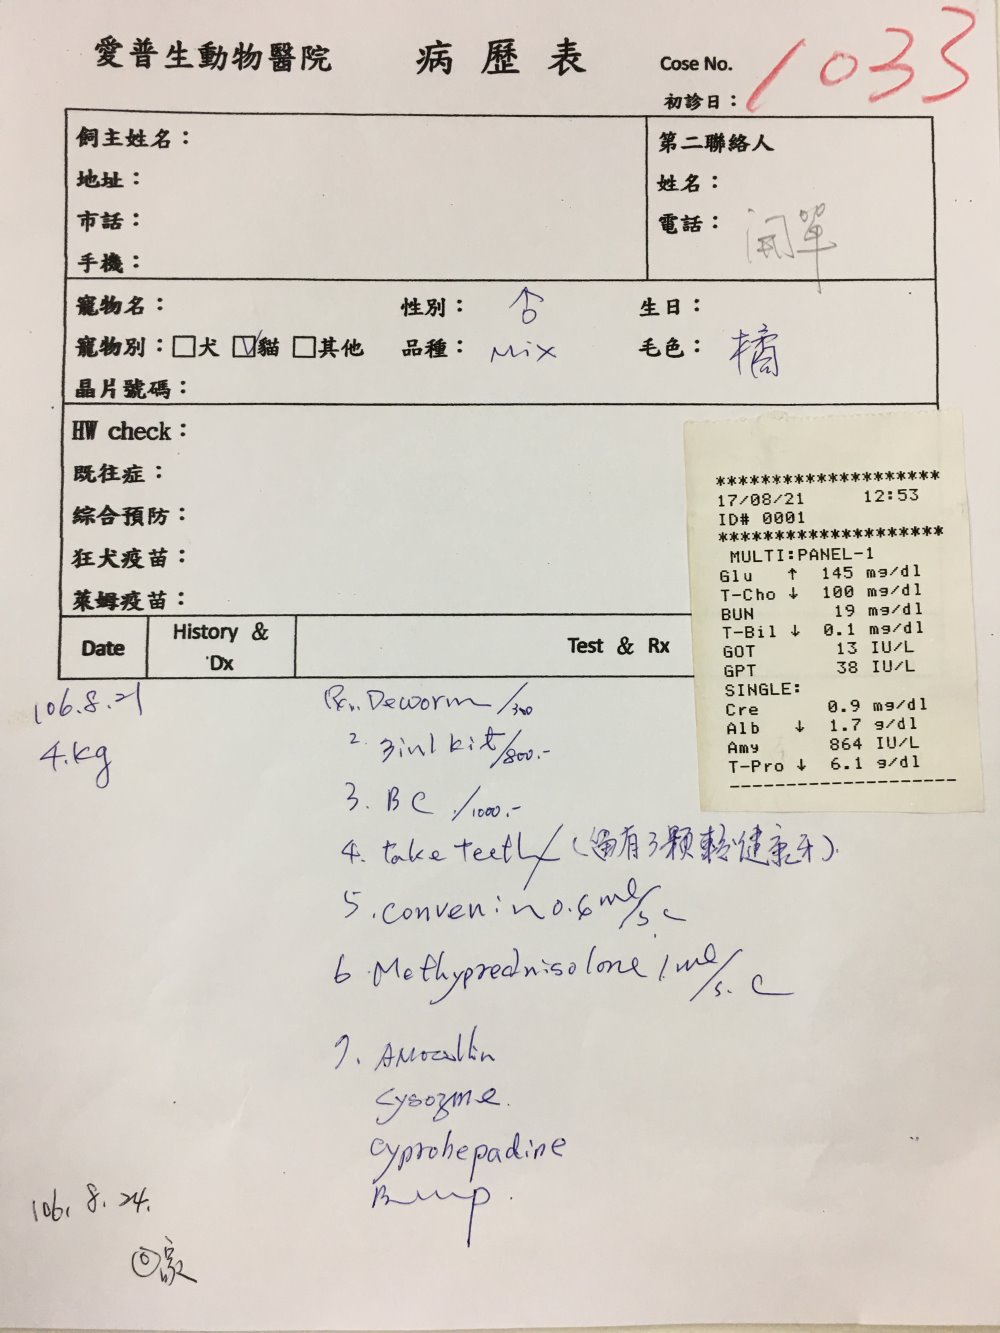 愛普生動物醫院 病歷表 Cose No. 1033
初診日：
飼主姓名：
地址：
市話：
手機：
第二聯絡人
姓名：
電話：
寵物名： 性別：♂ 生日：
寵物別：□犬 ☑貓 □其他 品種：Mix 毛色：橘
晶片號碼：
HW check：
既往症：
綜合預防：
狂犬疫苗：
萊姆疫苗：
********************
17/08/21 12:53
ID# 0001
********************
MULTI:PANEL-1
Glu ↑ 145 mg/dl
T-Cho ↓ 100 mg/dl
BUN 19 mg/dl
T-Bil ↓ 0.1 mg/dl
GOT 13 IU/L
GPT 38 IU/L
SINGLE:
Cre 0.9 mg/dl
Alb ↓ 1.7 g/dl
Amy 864 IU/L
T-Pro ↓ 6.1 g/dl
--------------------
Date History & Dx Test & Rx
106.8.21 Deworm/300
4.kg 2. 3in1 kit/800.-
3. BC /1000.-
4. take teeth (留有3顆較健康牙).
5. convenin 0.6ml/s.c
6. Methyprednisolone 1ml/s.c
7.
Lysozme.
cyprohepadine
106.8.24.